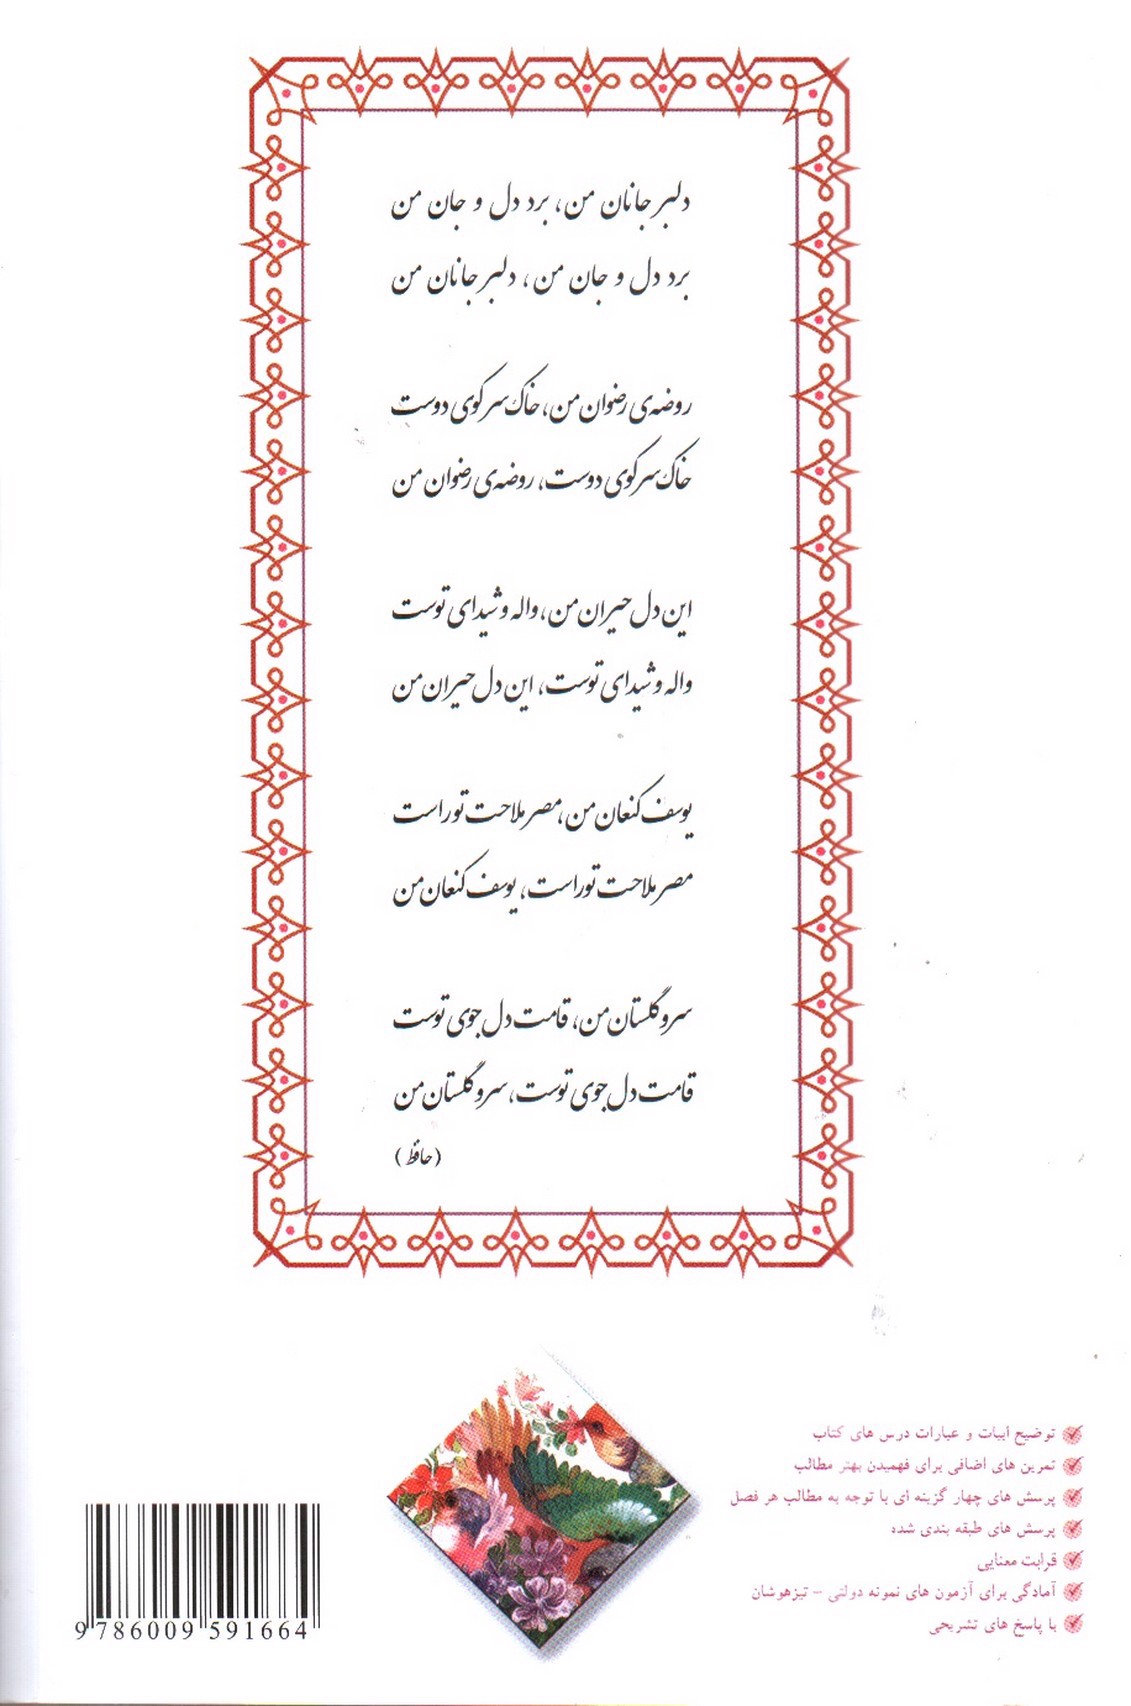 دلبر جانان من، برد دل و جان من
برد دل و جان من، دلبر جانان من
روضه‌ی رضوان من، خاک سر کوی دوست
خاک سر کوی دوست، روضه‌ی رضوان من
این دل حیران من، واله و شیدای توست
واله و شیدای توست، این دل حیران من
یوسف کنعان من، مصر ملاحت توراست
مصر ملاحت توراست، یوسف کنعان من
سرو گلستان من، قامت دل جوی توست
قامت دل جوی توست، سرو گلستان من
(حافظ)
توضیح ابیات و عبارات درس های کتاب
تمرین های اضافی برای فهمیدن بهتر مطالب
پرسش های چهار گزینه ای با توجه به مطالب هر فصل
پرسش های طبقه بندی شده
قرابت معنایی
آمادگی برای آزمون های نمونه دولتی - تیزهوشان
با پاسخ های تشریحی
9 786009 591664